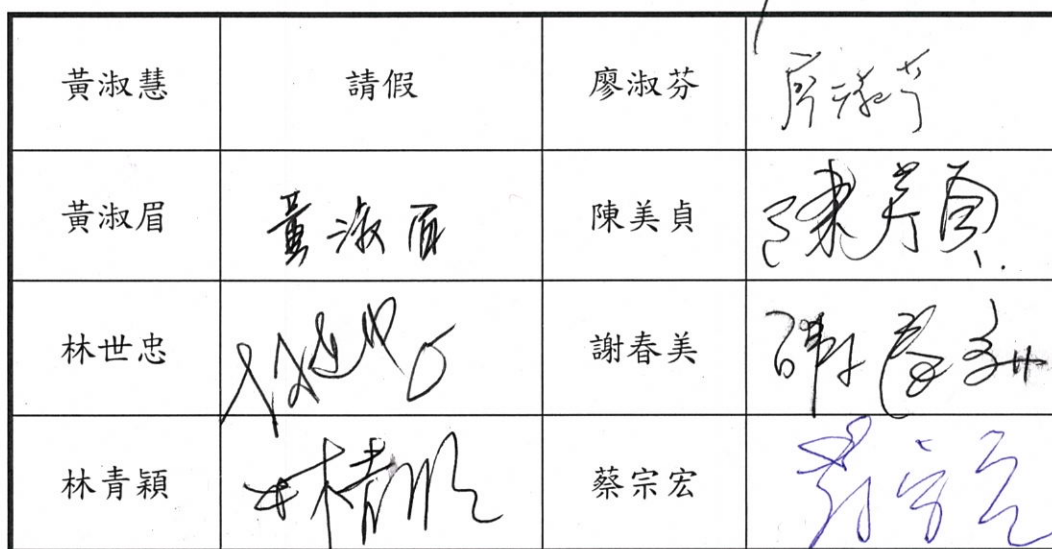 黃淑慧 請假 廖淑芬 廖淑芬
黃淑眉 黃淑眉 陳美貞 陳美貞
林世忠 林世忠 謝春美 謝春美
林青穎 蔡宗宏